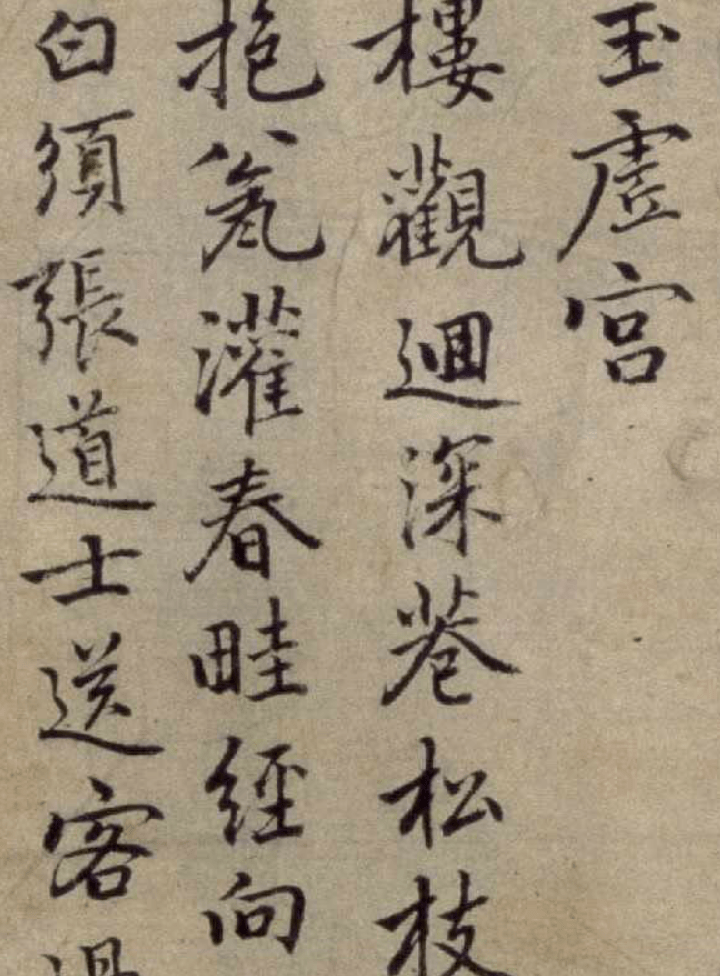 玉虚宫
樓觀迴深巷松枝
抱瓮灌春畦經向
白須張道士送客